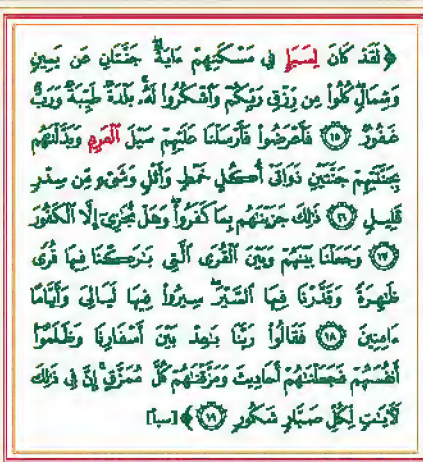 ﴿ لَقَدْ كَانَ لِسَبَإٍ فِي مَسْكَنِهِمْ ءَايَةٌ ۖ جَنَّتَانِ عَن يَمِينٍ
وَشِمَالٍ ۖ كُلُوا۟ مِن رِّزْقِ رَبِّكُمْ وَٱشْكُرُوا۟ لَهُۥ ۚ بَلْدَةٌ طَيِّبَةٌ وَرَبٌّ
غَفُورٌ ⑮ فَأَعْرَضُوا۟ فَأَرْسَلْنَا عَلَيْهِمْ سَيْلَ ٱلْعَرِمِ وَبَدَّلْنَٰهُم
بِجَنَّتَيْهِمْ جَنَّتَيْنِ ذَوَاتَىْ أُكُلٍ خَمْطٍ وَأَثْلٍ وَشَىْءٍ مِّن سِدْرٍ
قَلِيلٍ ⑯ ذَٰلِكَ جَزَيْنَٰهُم بِمَا كَفَرُوا۟ ۖ وَهَلْ نُجَٰزِىٓ إِلَّا ٱلْكَفُورَ
⑰ وَجَعَلْنَا بَيْنَهُمْ وَبَيْنَ ٱلْقُرَى ٱلَّتِى بَٰرَكْنَا فِيهَا قُرًى
ظَٰهِرَةً وَقَدَّرْنَا فِيهَا ٱلسَّيْرَ ۖ سِيرُوا۟ فِيهَا لَيَالِىَ وَأَيَّامًا
ءَامِنِينَ ⑱ فَقَالُوا۟ رَبَّنَا بَٰعِدْ بَيْنَ أَسْفَارِنَا وَظَلَمُوٓا۟
أَنفُسَهُمْ فَجَعَلْنَٰهُمْ أَحَادِيثَ وَمَزَّقْنَٰهُمْ كُلَّ مُمَزَّقٍ ۚ إِنَّ فِى ذَٰلِكَ
لَءَايَٰتٍ لِّكُلِّ صَبَّارٍ شَكُورٍ ⑲ ﴾ [سبأ]